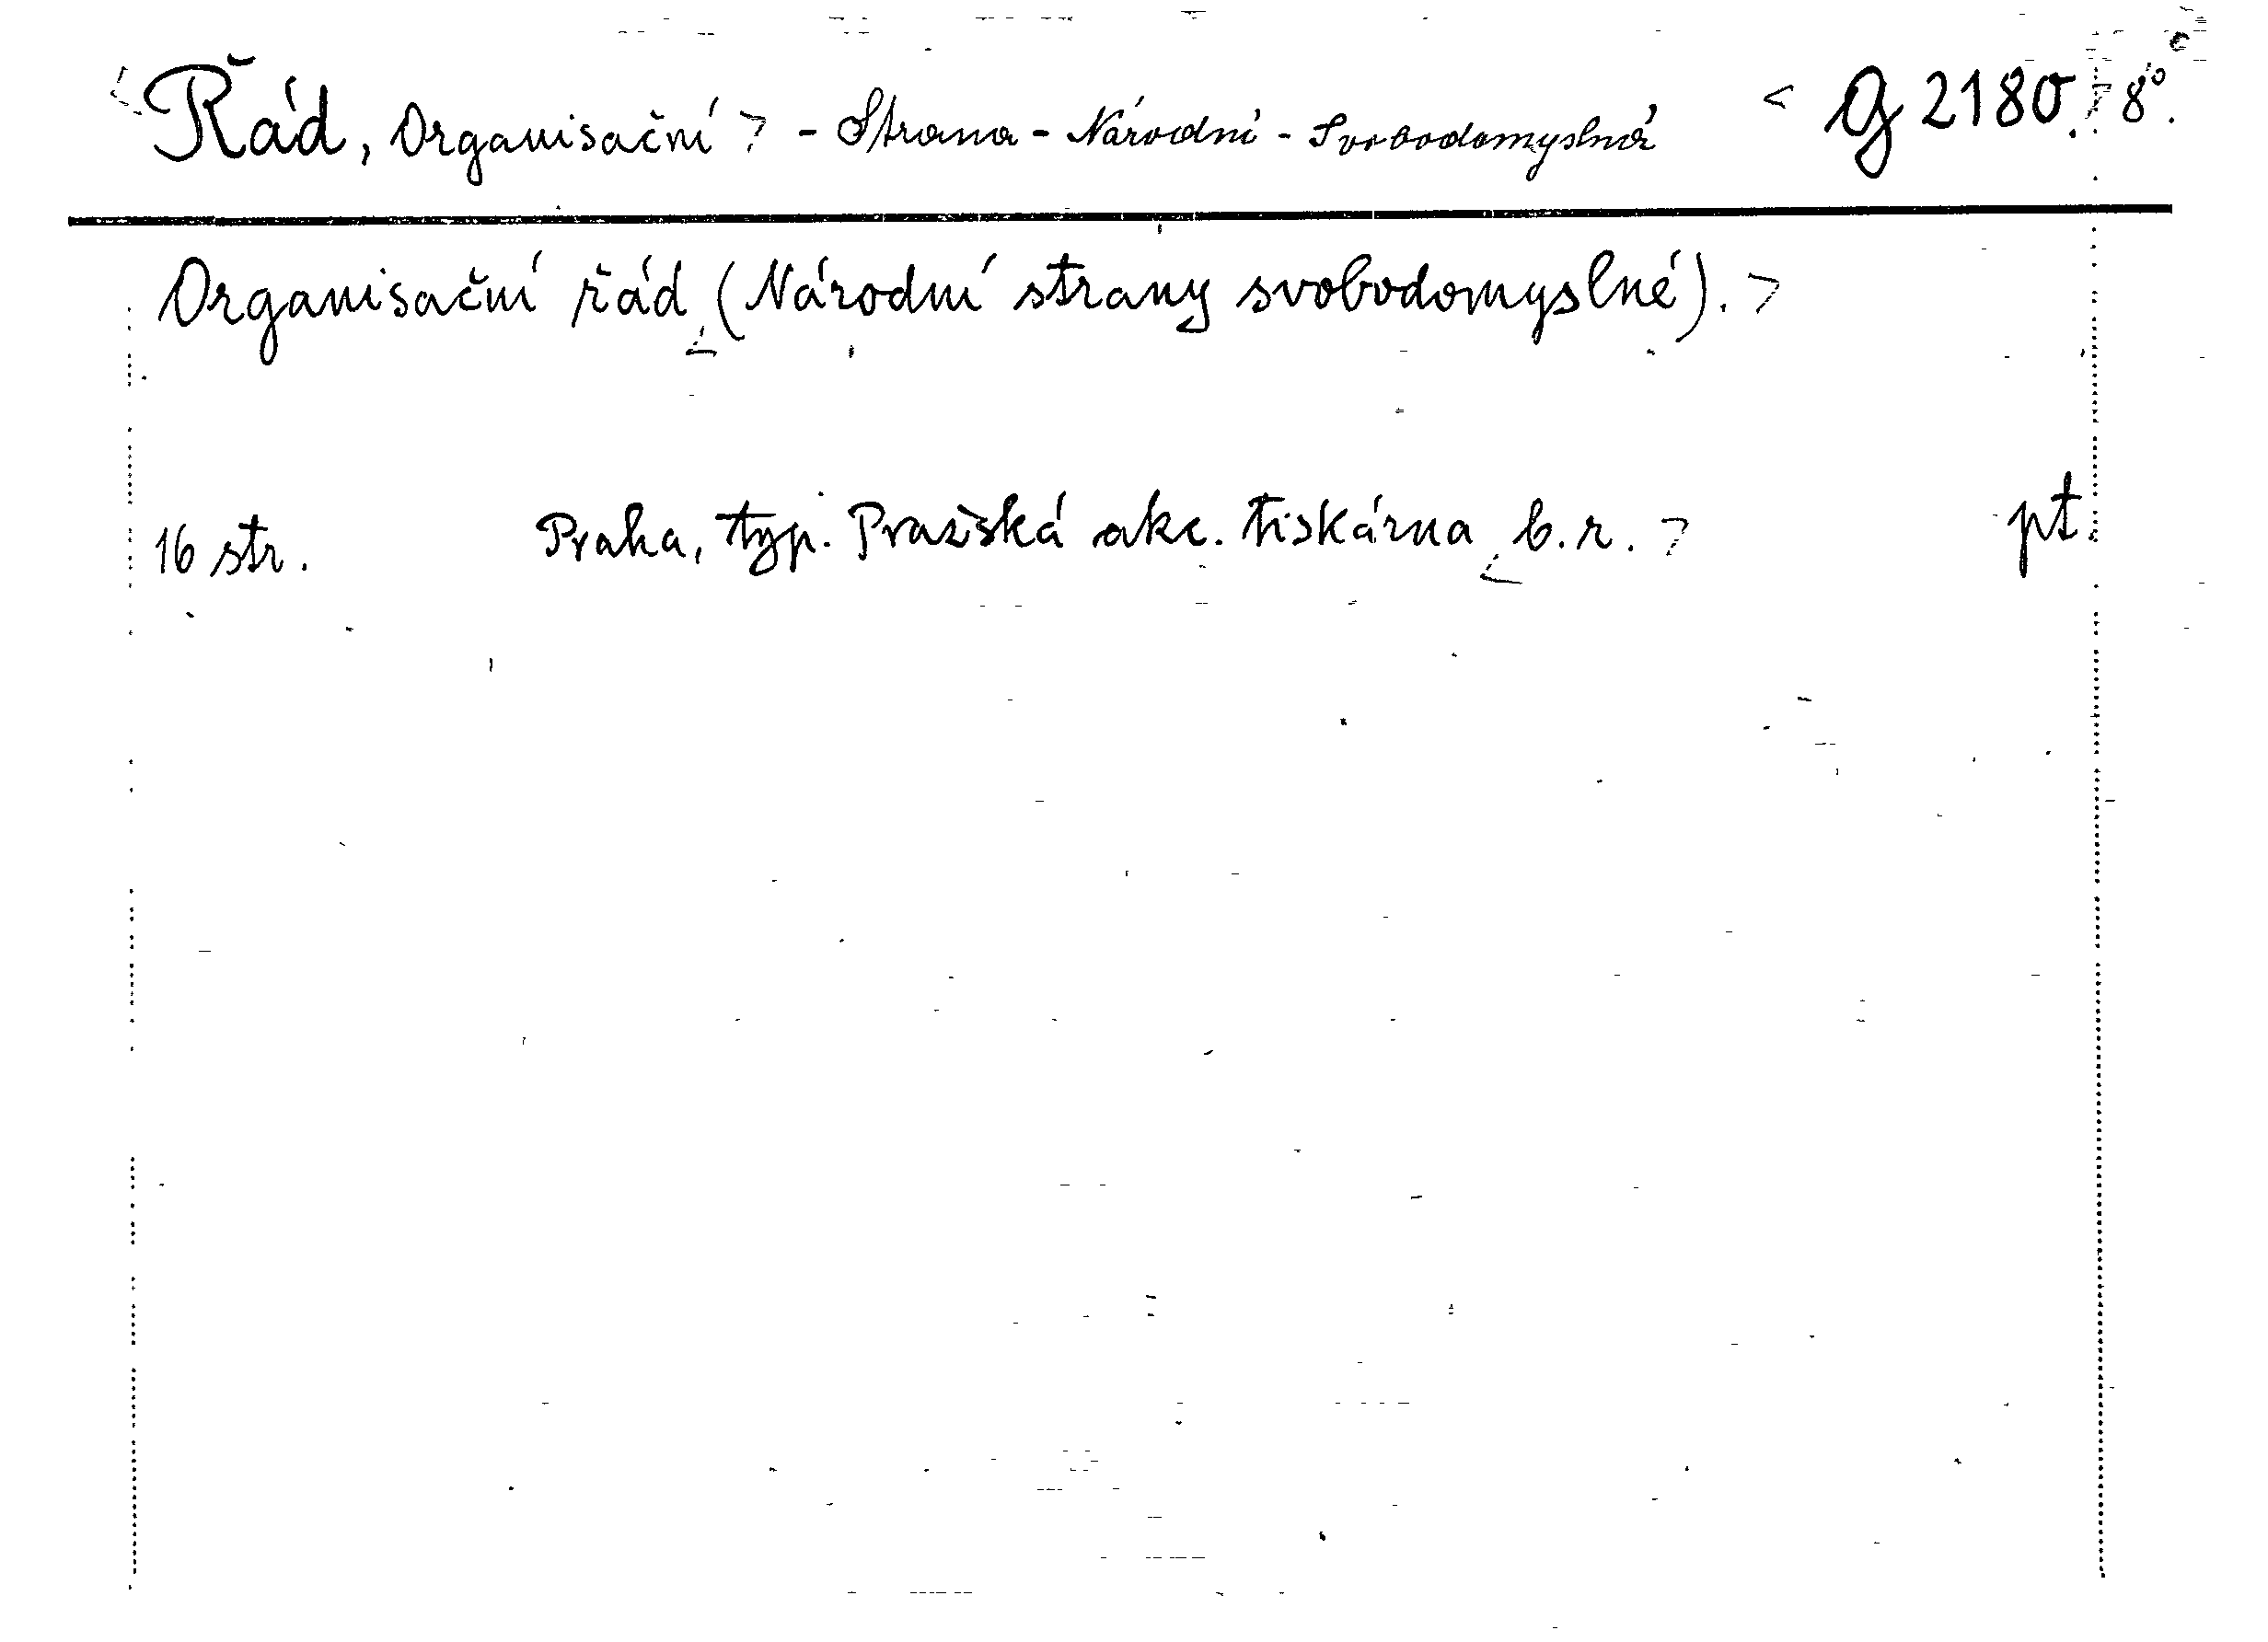 <Řád, Organisační> - Strana - Národní - Svobodomyslná <G 2180.> 8°.
Organisační řád <(Národní strany svobodomyslné).>
16 str. Praha, typ. Pražská akc. tiskárna <b.r.> pt.